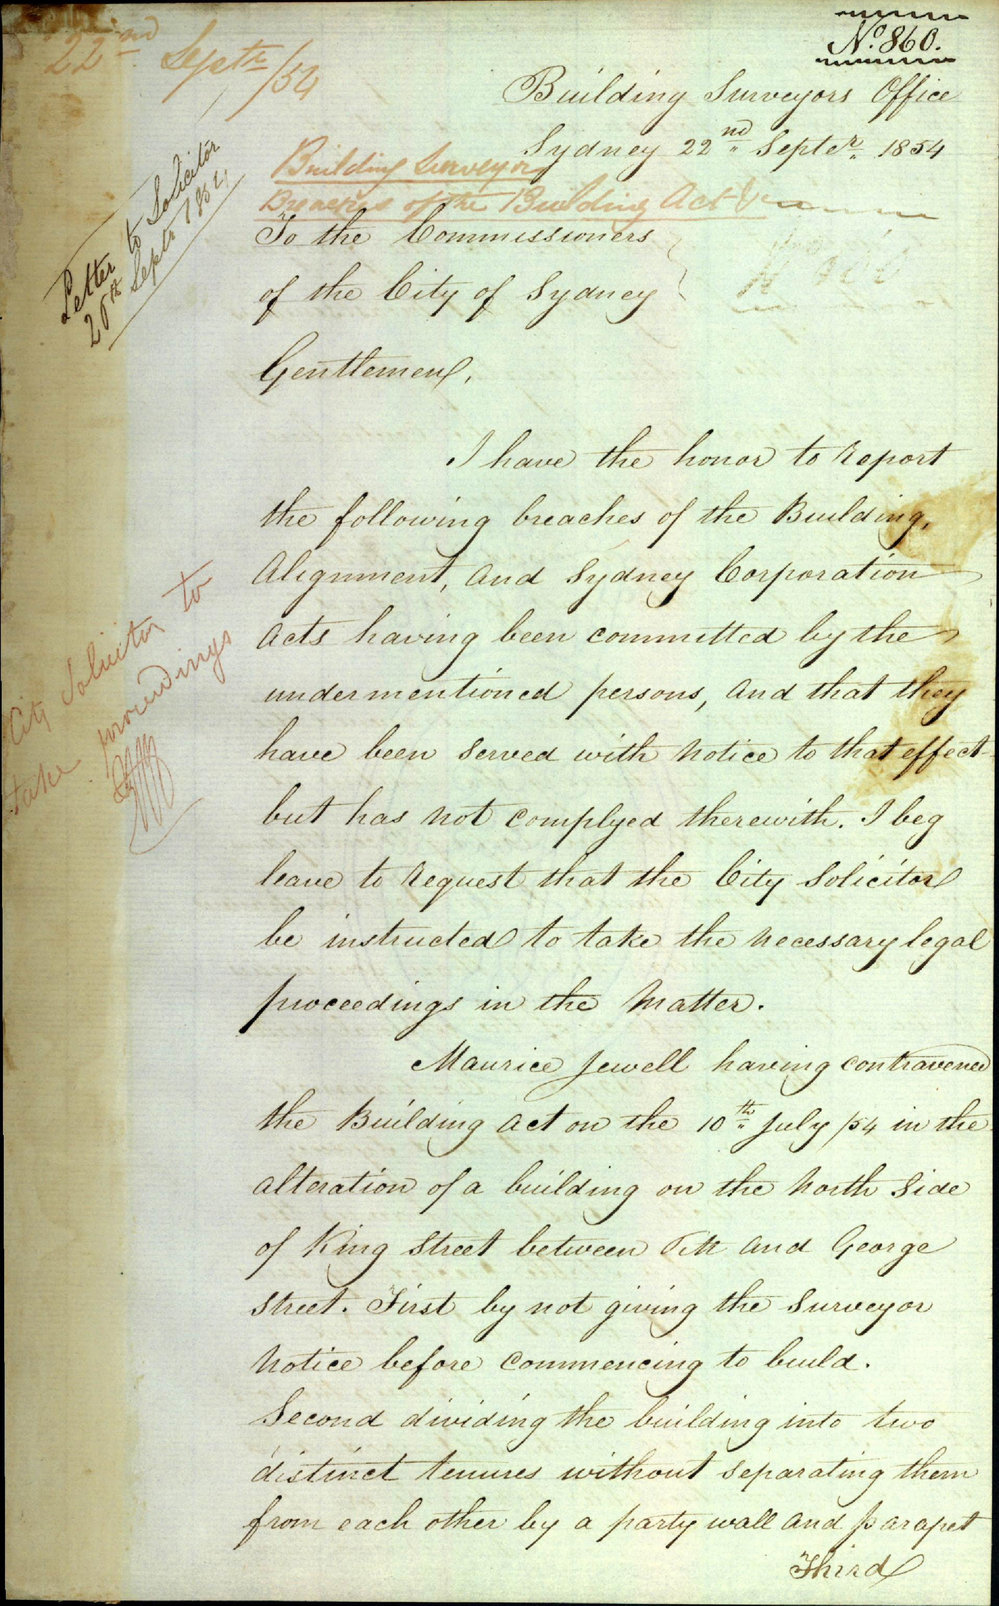 22nd Septr/54
No. 860.
Building Surveyors Office
Sydney 22nd Septr. 1854
Letter to Solicitor
26th Septr 1854
Building Surveyor
Breaches of the Building Act &c
To the Commissioners
of the City of Sydney
Gentlemen,
I have the honor to report
the following breaches of the Building,
Alignment, and Sydney Corporation
Acts having been committed by the
undermentioned persons, and that they
have been served with notice to that effect
but has not complyed therewith. I beg
leave to request that the City Solicitor
be instructed to take the necessary legal
proceedings in the matter.
City Solicitor to
take proceedings
Maurice Jewell having contravened
the Building Act on the 10th July /54 in the
alteration of a building on the North Side
of King Street between Pitt and George
Street. First by not giving the Surveyor
notice before commencing to build.
Second dividing the building into two
distinct tenures without separating them
from each other by a party wall and parapet
Third